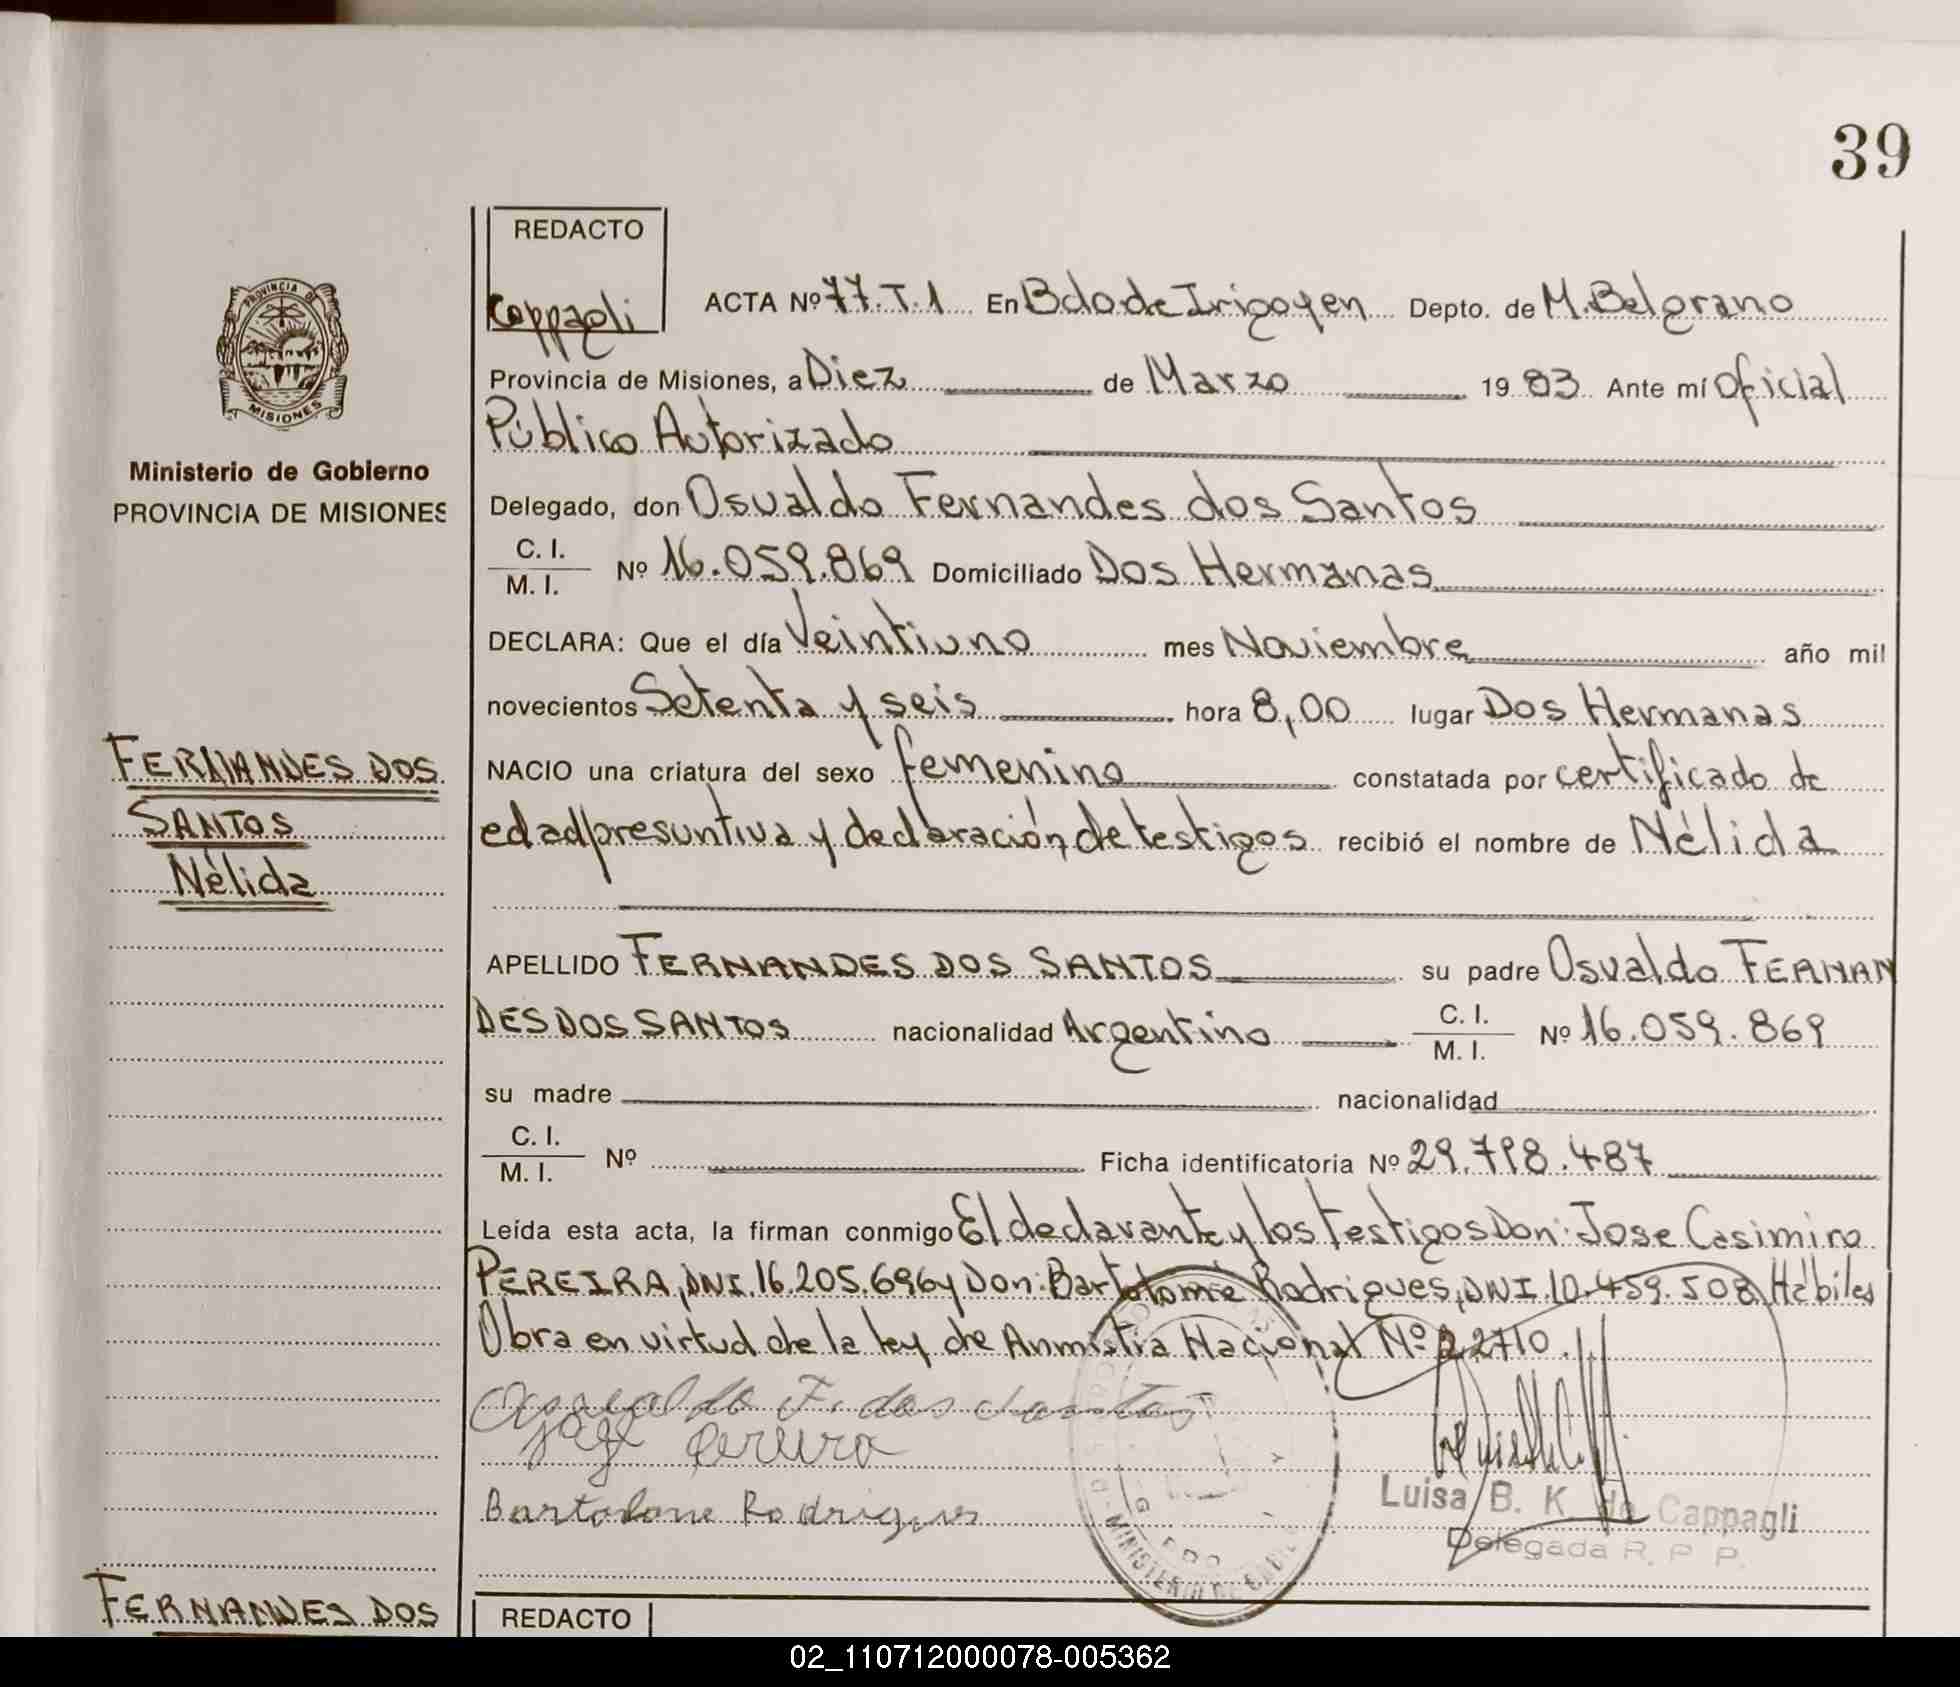 39
REDACTO
Cappagli
ACTA Nº 77.T.1 En Bdo de Irigoyen Depto. de M. Belgrano
Provincia de Misiones, a Diez de Marzo 19 83 Ante mí Oficial
Público Autorizado
Delegado, don Osvaldo Fernandes dos Santos
C. I.
M. I. Nº 16.059.869 Domiciliado Dos Hermanas
DECLARA: Que el día Veintiuno mes Noviembre año mil
novecientos Setenta y seis hora 8,00 lugar Dos Hermanas
NACIO una criatura del sexo femenino constatada por certificado de
edad presuntiva y declaración de testigos recibió el nombre de Nélida
APELLIDO FERNANDES DOS SANTOS su padre Osvaldo FERNAN
DES DOS SANTOS nacionalidad Argentino C. I. M. I. Nº 16.059.869
su madre nacionalidad
C. I.
M. I. Nº Ficha identificatoria Nº 29.798.487
Leída esta acta, la firman conmigo El declarante y los Testigos Don: Jose Casimiro
PEREIRA, DNI. 16.205.696 y Don: Bartolomé Rodrigues, DNI. 10.459.508 Hábiles
Obra en virtud de la ley de Anmistia Nacional Nº 22710.
Osvaldo F. dos Santos
José Pereira
Bartolome Rodrigues
Luisa B. K. de Cappagli
Delegada R. P. P.
PROVINCIA DE
MISIONES
Ministerio de Gobierno
PROVINCIA DE MISIONES
FERNANDES DOS
SANTOS
Nélida
FERNANDES DOS
REDACTO
02_110712000078-005362